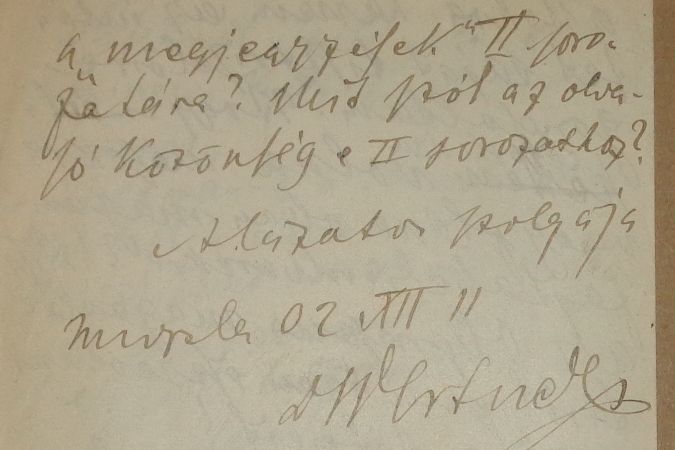 a „megjegyzések" II soro-
zatára? Mit szól az olva-
só közönség e II sorozathoz?
Alázatos szolgája
Muzsla 02 XII 11